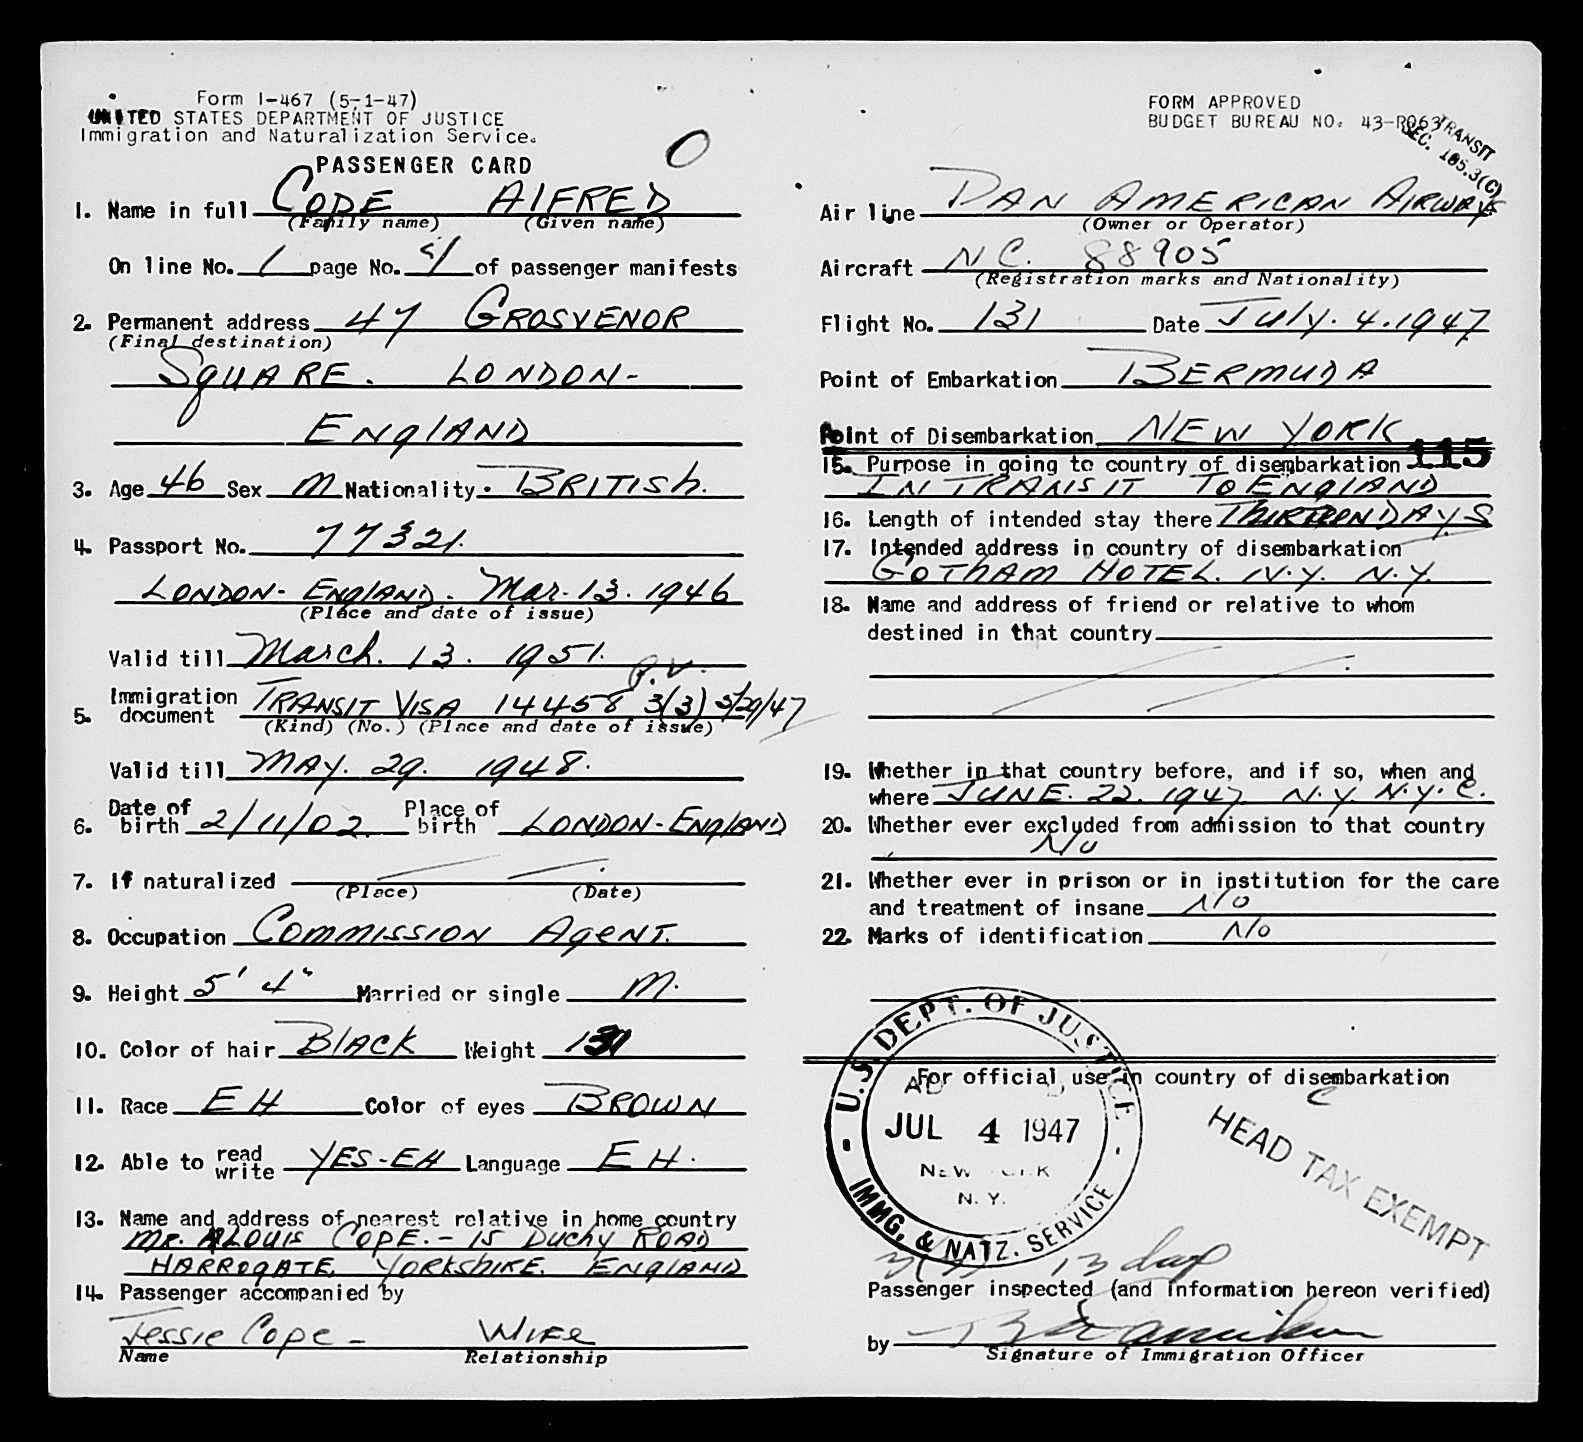 Form I-467 (5-1-47)
UNITED STATES DEPARTMENT OF JUSTICE
Immigration and Naturalization Service.
PASSENGER CARD
O
1. Name in full COPE ALFRED
(Family name) (Given name)
On line No. 1 page No. 1 of passenger manifests
2. Permanent address 47 GROSVENOR
(Final destination)
SQUARE. LONDON-
ENGLAND
3. Age 46 Sex M Nationality. BRITISH.
4. Passport No. 77321.
LONDON- ENGLAND. Mar. 13. 1946
(Place and date of issue)
Valid till March. 13. 1951.
P.V.
5. Immigration document TRANSIT VISA 14458 3(3) 5/29/47
(Kind) (No.) (Place and date of issue)
Valid till MAY. 29. 1948.
6. Date of birth 2/11/02 Place of birth LONDON-ENGLAND
7. If naturalized
(Place) (Date)
8. Occupation COMMISSION AGENT.
9. Height 5' 4" Married or single M.
10. Color of hair BLACK Weight
11. Race EH Color of eyes BROWN
12. Able to read write YES-EH Language EH.
13. Name and address of nearest relative in home country
MR. LOUIS COPE.- 15 DUCHY ROAD
HARROGATE. YORKSHIRE. ENGLAND
14. Passenger accompanied by
Jessie Cope - WIFE
Name Relationship
FORM APPROVED
BUDGET BUREAU NO. 43-R063
TRANSIT
SEC. 105.3(C)
Air line PAN AMERICAN AIRWAYS
(Owner or Operator)
Aircraft NC. 88905
(Registration marks and Nationality)
Flight No. 131 Date July. 4. 1947
Point of Embarkation BERMUDA
Point of Disembarkation NEW YORK
115
15. Purpose in going to country of disembarkation
IN TRANSIT TO ENGLAND
16. Length of intended stay there THIRTEEN DAYS
17. Intended address in country of disembarkation
GOTHAM HOTEL. N.Y. N.Y.
18. Name and address of friend or relative to whom
destined in that country
19. Whether in that country before, and if so, when and
where JUNE. 22. 1947 N.Y. N.Y.C.
20. Whether ever excluded from admission to that country
No
21. Whether ever in prison or in institution for the care
and treatment of insane No
22. Marks of identification No
For official use in country of disembarkation
U.S. DEPT. OF JUSTICE
JUL 4 1947
NEW YORK
N.Y.
IMMG. & NATZ. SERVICE
HEAD TAX EXEMPT
13 days
Passenger inspected (and information hereon verified)
by
Signature of Immigration Officer